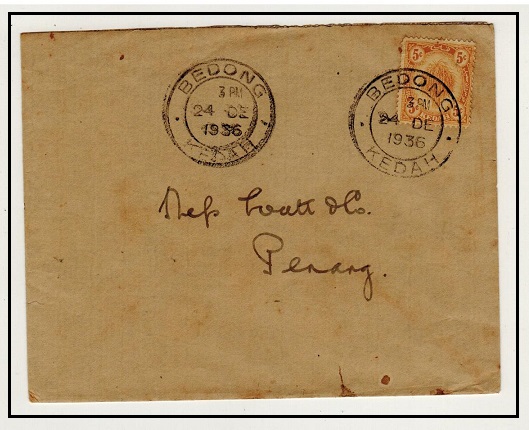 BEDONG
3 PM
24 DE
1936
KEDAH
5c 5c
BEDONG
3 PM
24 DE
1936
KEDAH
& Co.
Penang.